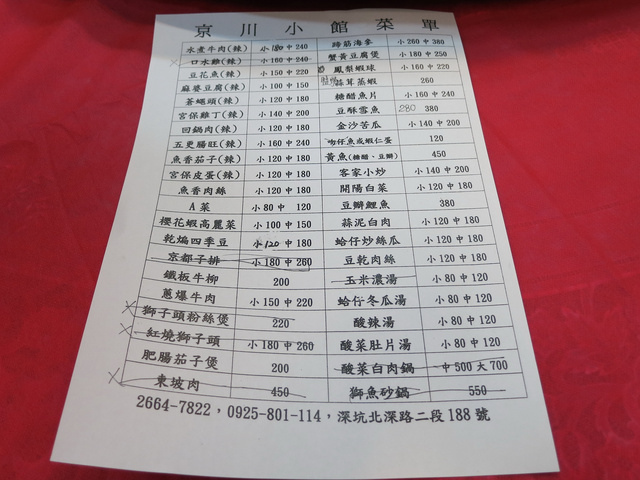 京川小館菜單
水煮牛肉(辣) 小180中240 蹄筋海參 小260中380
口水雞(辣) 小160中240 蟹黃豆腐煲 小180中250
豆花魚(辣) 小150中220 鳳梨蝦球 小160中220
麻婆豆腐(辣) 小100中150 蒜茸蒸蝦 260
蒼蠅頭(辣) 小120中180 糖醋魚片 小160中240
宮保雞丁(辣) 小140中200 豆酥雪魚 280 380
回鍋肉(辣) 小120中180 金沙苦瓜 小140中200
五更腸旺(辣) 小160中240 吻仔魚或蝦仁蛋 120
魚香茄子(辣) 小120中180 黃魚(糖醋、豆瓣) 450
宮保皮蛋(辣) 小120中180 客家小炒 小140中200
魚香肉絲 小120中180 開陽白菜 小120中180
A菜 小80中120 豆瓣鯉魚 380
櫻花蝦高麗菜 小100中150 蒜泥白肉 小120中180
乾煸四季豆 小120中180 蛤仔炒絲瓜 小120中180
京都子排 小180中260 豆乾肉絲 小120中180
鐵板牛柳 200 玉米濃湯 小80中120
蔥爆牛肉 小150中220 蛤仔冬瓜湯 小80中120
獅子頭粉絲煲 220 酸辣湯 小80中120
紅燒獅子頭 小180中260 酸菜肚片湯 小80中120
肥腸茄子煲 200 酸菜白肉鍋 中500大700
東坡肉 450 獅魚砂鍋 550
2664-7822，0925-801-114，深坑北深路二段188號